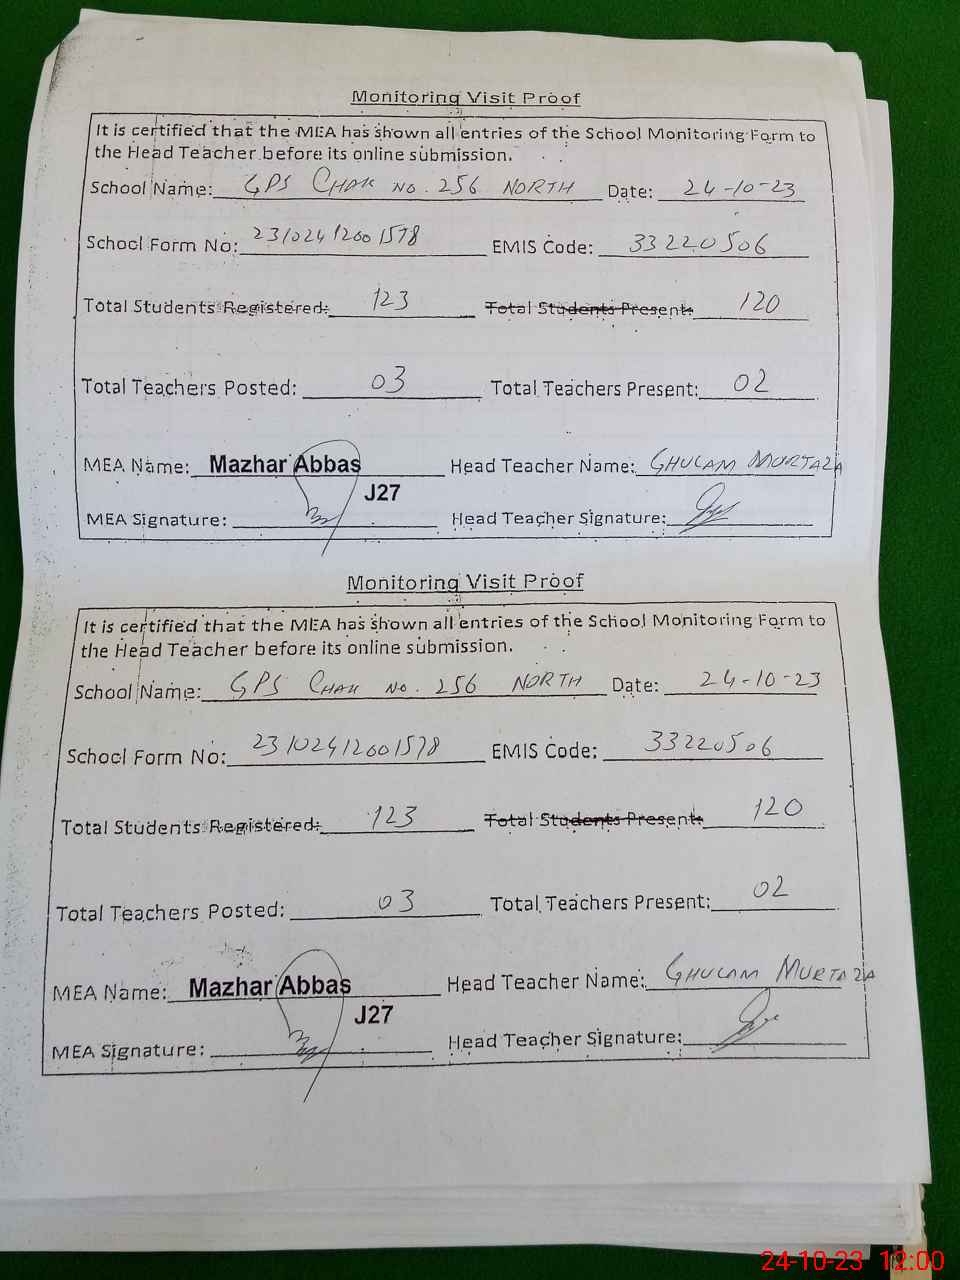 Monitoring Visit Proof
It is certified that the MEA has shown all entries of the School Monitoring Form to
the Head Teacher before its online submission.
School Name: GPS CHAK NO. 256 NORTH Date: 24-10-23
School Form No: 23102412001578 EMIS Code: 33220506
Total Students Registered: 123 Total Students Present: 120
Total Teachers Posted: 03 Total Teachers Present: 02
MEA Name: Mazhar Abbas Head Teacher Name: GHULAM MURTAZA
J27
MEA Signature: Head Teacher Signature:
Monitoring Visit Proof
It is certified that the MEA has shown all entries of the School Monitoring Form to
the Head Teacher before its online submission.
School Name: GPS CHAK NO. 256 NORTH Date: 24-10-23
School Form No: 23102412001578 EMIS Code: 33220506
Total Students Registered: 123 Total Students Present: 120
Total Teachers Posted: 03 Total Teachers Present: 02
MEA Name: Mazhar Abbas Head Teacher Name: GHULAM MURTAZA
J27
MEA Signature: Head Teacher Signature:
24-10-23 12:00